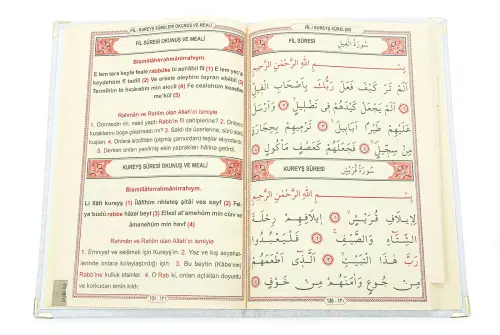 FİL / KUREYŞ SÛRELERİ OKUNUŞ VE MEALİ
FİL SÛRESİ OKUNUŞ VE MEALİ
Bismillâhirrahmânirrahıym.
E lem tera keyfe feale rabbüke bi ashâbil fîl (1) E lem yec'al
keydehüm fî tadlîl (2) Ve ersele aleyhim tayran ebâbîl (3)
Termîhim bi hıcâratim min siccîl (4) Fe cealehüm keasfim
me'kûl (5)
Rahmân ve Rahîm olan Allah'ın ismiyle
1. Görmedin mi, nasıl yaptı Rabb'in fil sahiplerine? 2. Onların
tuzaklarını boşa çıkarmadı mı? 3. Saldı da üzerlerine, sürü
4. Onlara siccîlden (pişmiş çamurdan) taşlar atıyorlardı.
5. Derken onları yenilmiş ekin yaprakları hâline getirdi.
KUREYŞ SÛRESİ OKUNUŞ VE MEALİ
Bismillâhirrahmânirrahıym.
Li îlâfi kurayş (1) Îlâfihim rıhleteş şitâi ves sayf (2) Fel-
ya'büdû rabbe hâzel beyt (3) Ellezî at'amehüm min cûiv ve
âmenehüm min havf (4)
Rahmân ve Rahîm olan Allah'ın ismiyle
1. Emniyet ve selâmeti için Kureyş'in. 2. Yaz ve kış seyahat-
lerinde onlara kolaylaştırdığı için. 3. Bu beytin (Kâbe'nin)
Rabb'ine kulluk etsinler. 4. O Rab ki, onları açlıktan doyurdu
ve korkudan emin kıldı.
121 - ١٢١
FİL / KUREYŞ SÛRELERİ
FİL SÛRESİ سُورَةُ الْفِيلِ
بِسْمِ اللّٰهِ الرَّحْمٰنِ الرَّحِيمِ
اَلَمْ تَرَ كَيْفَ فَعَلَ رَبُّكَ بِاَصْحَابِ الْفِيلِ
﴿١﴾ اَلَمْ يَجْعَلْ كَيْدَهُمْ فِى تَضْلِيلٍ ﴿٢﴾ وَاَرْسَلَ
عَلَيْهِمْ طَيْرًا اَبَابِيلَ ﴿٣﴾ تَرْمِيهِمْ بِحِجَارَةٍ
مِنْ سِجِّيلٍ ﴿٤﴾ فَجَعَلَهُمْ كَعَصْفٍ مَأْكُولٍ ﴿٥﴾
KUREYŞ SÛRESİ سُورَةُ قُرَيْشٍ
بِسْمِ اللّٰهِ الرَّحْمٰنِ الرَّحِيمِ
لِاِيلَافِ قُرَيْشٍ ﴿١﴾ اِيلَافِهِمْ رِحْلَةَ
الشِّتَاءِ وَالصَّيْفِ ﴿٢﴾ فَلْيَعْبُدُوا
رَبَّ هٰذَا الْبَيْتِ ﴿٣﴾ اَلَّذِى اَطْعَمَهُمْ
مِنْ جُوعٍ وَاٰمَنَهُمْ مِنْ خَوْفٍ ﴿٤﴾